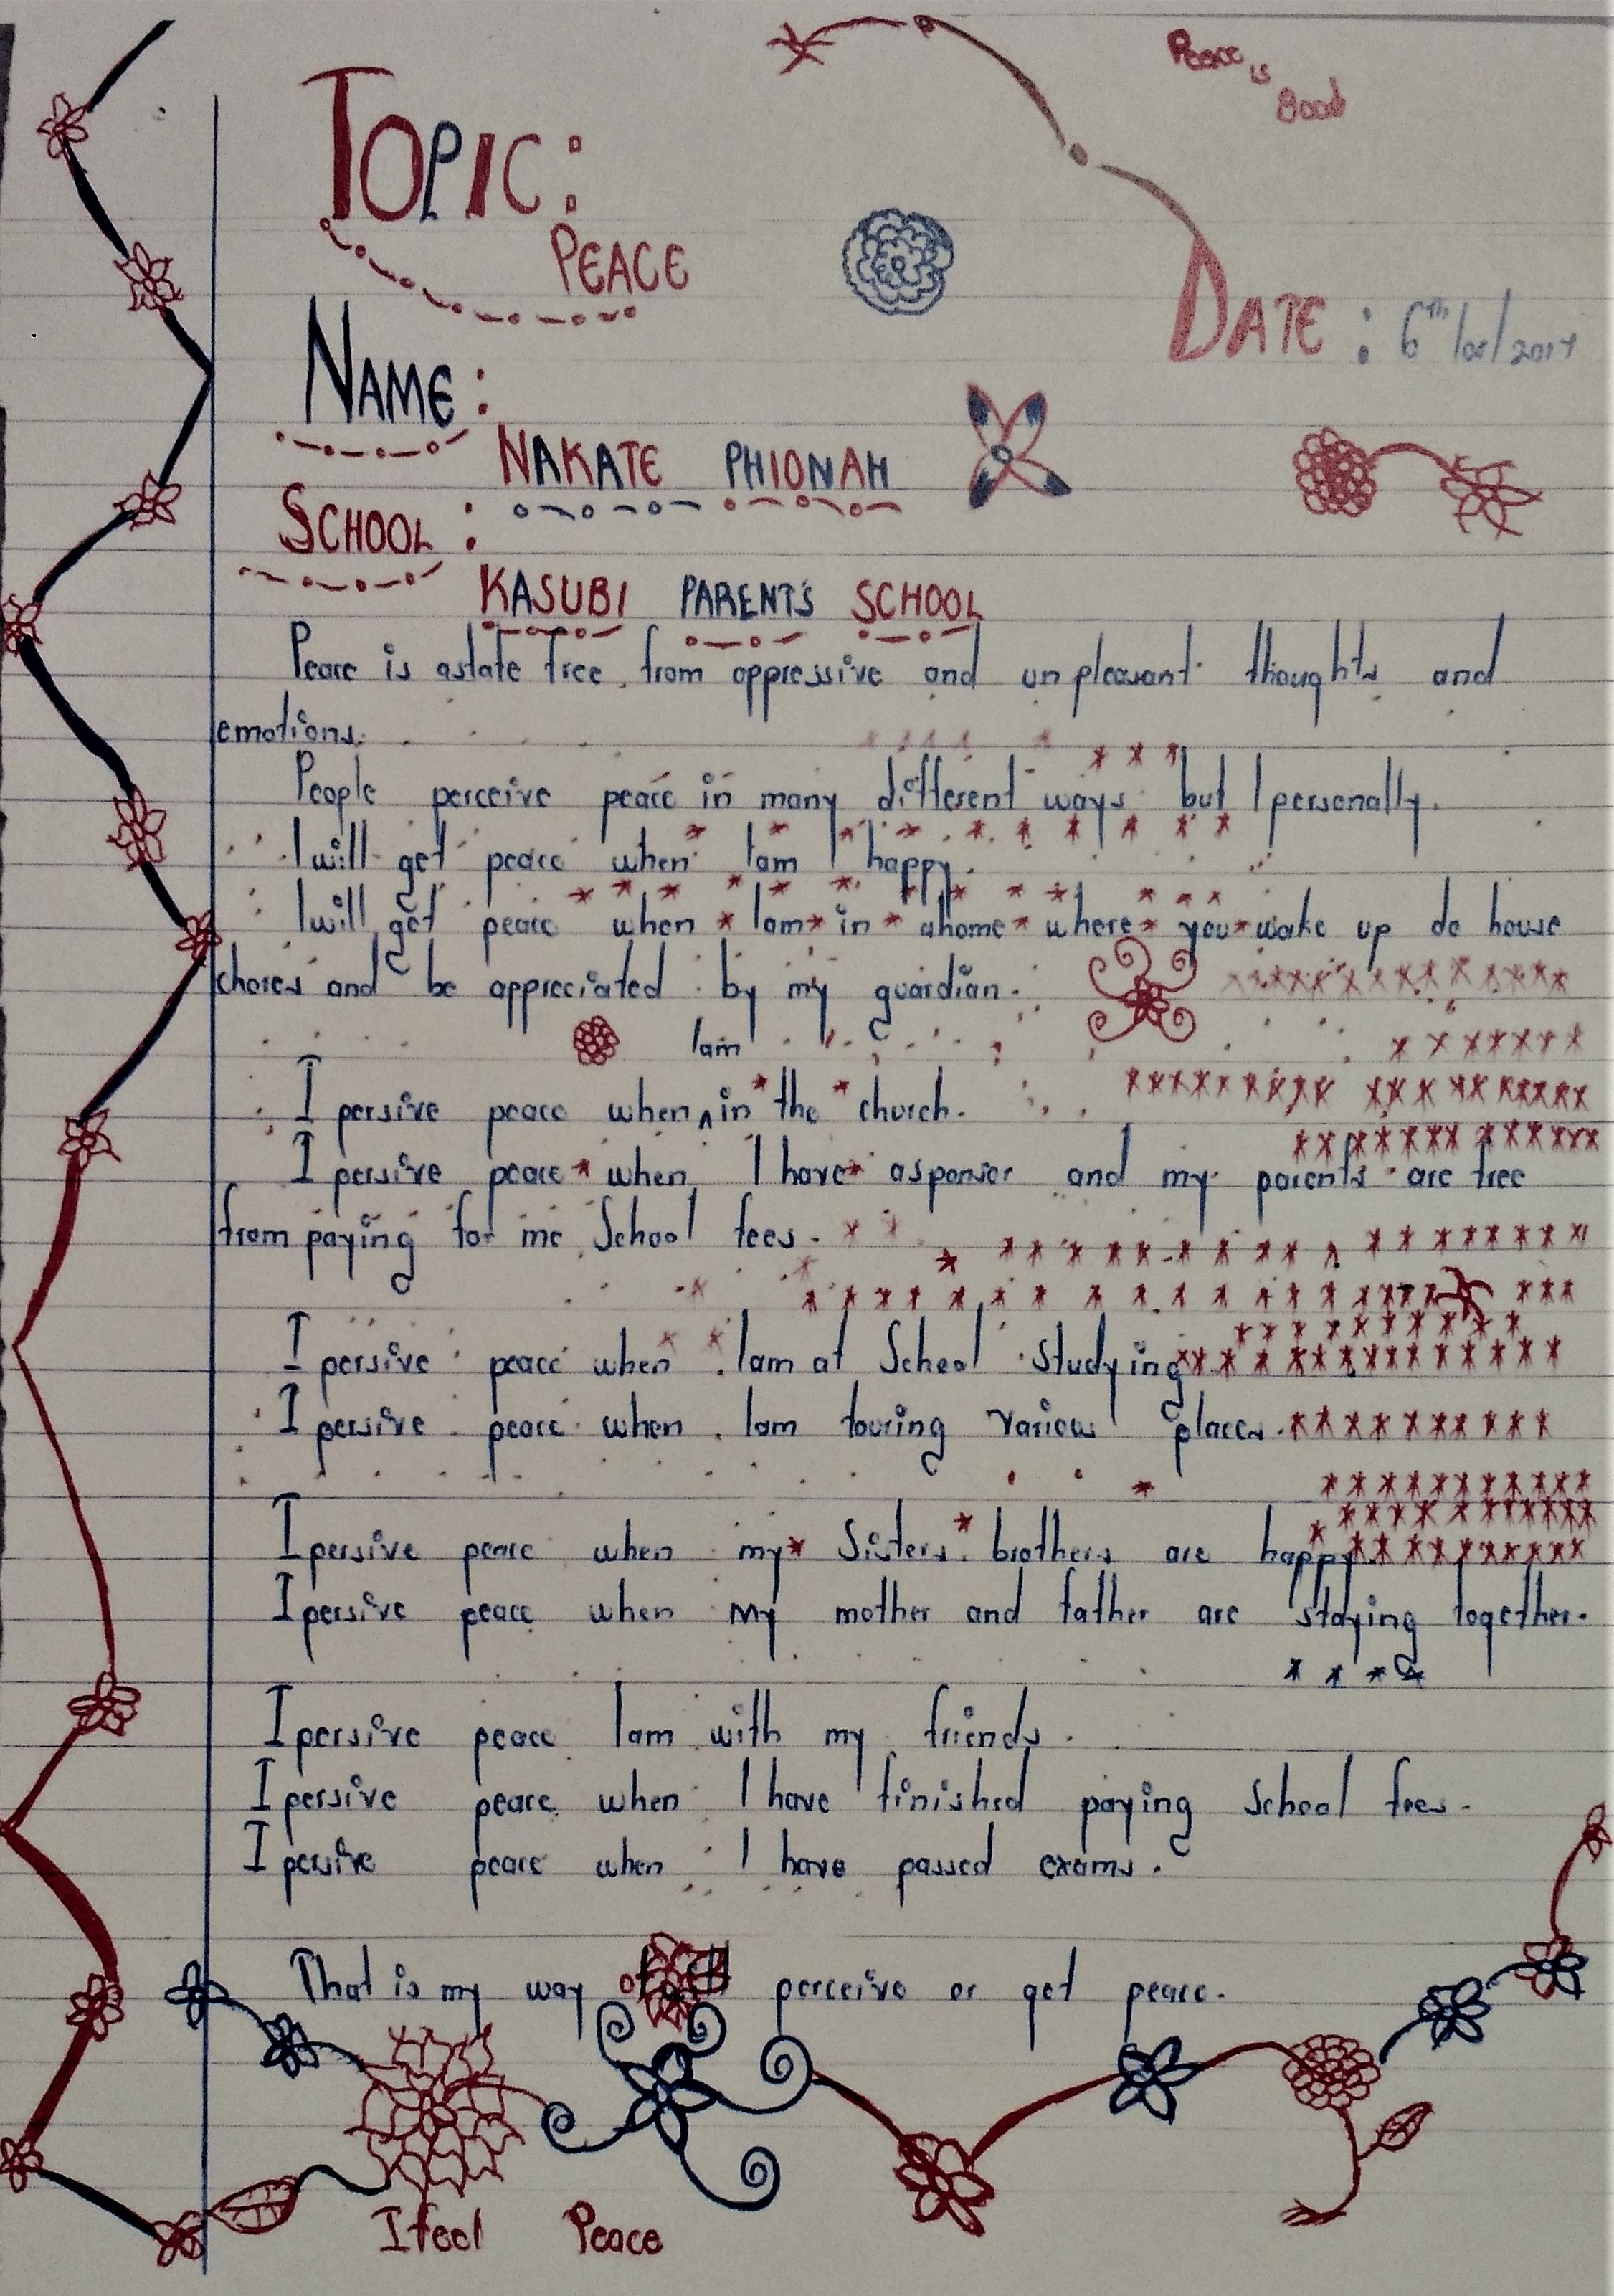 Peace is good
TOPIC:
PEACE
DATE: 6th/02/2017
NAME:
NAKATE PHIONAH
SCHOOL:
KASUBI PARENT'S SCHOOL
Peace is astate free from oppressive and unpleasant thoughts and
emotions.
People perceive peace in many different ways but I personally.
I will get peace when Iam happy.
I will get peace when Iam in ahome where you wake up do house
chores and be appreciated by my guardian.
Iam
I persive peace when ^ in the church.
I persive peace when I have asponsor and my parents are free
from paying for me School fees.
I persive peace when Iam at School studying
I persive peace when Iam touring various places.
I persive peace when my Sisters, brothers are happy
I persive peace when my mother and father are staying together.
I persive peace Iam with my friends.
I persive peace when I have finished paying school fees.
I persive peace when I have passed exams.
That is my way of perceive or get peace.
I feel Peace